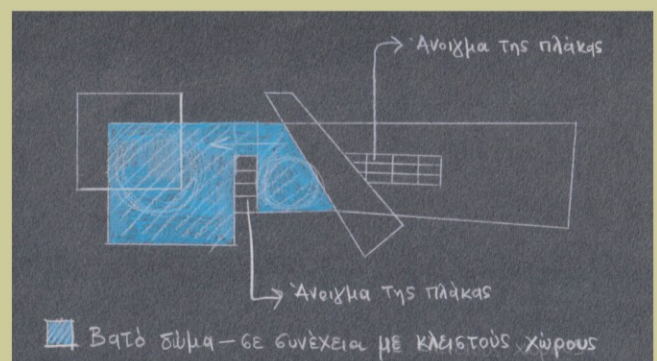 Άνοιγμα της πλάκας
Άνοιγμα της πλάκας
Βατό δώμα – σε συνέχεια με κλειστούς χώρους